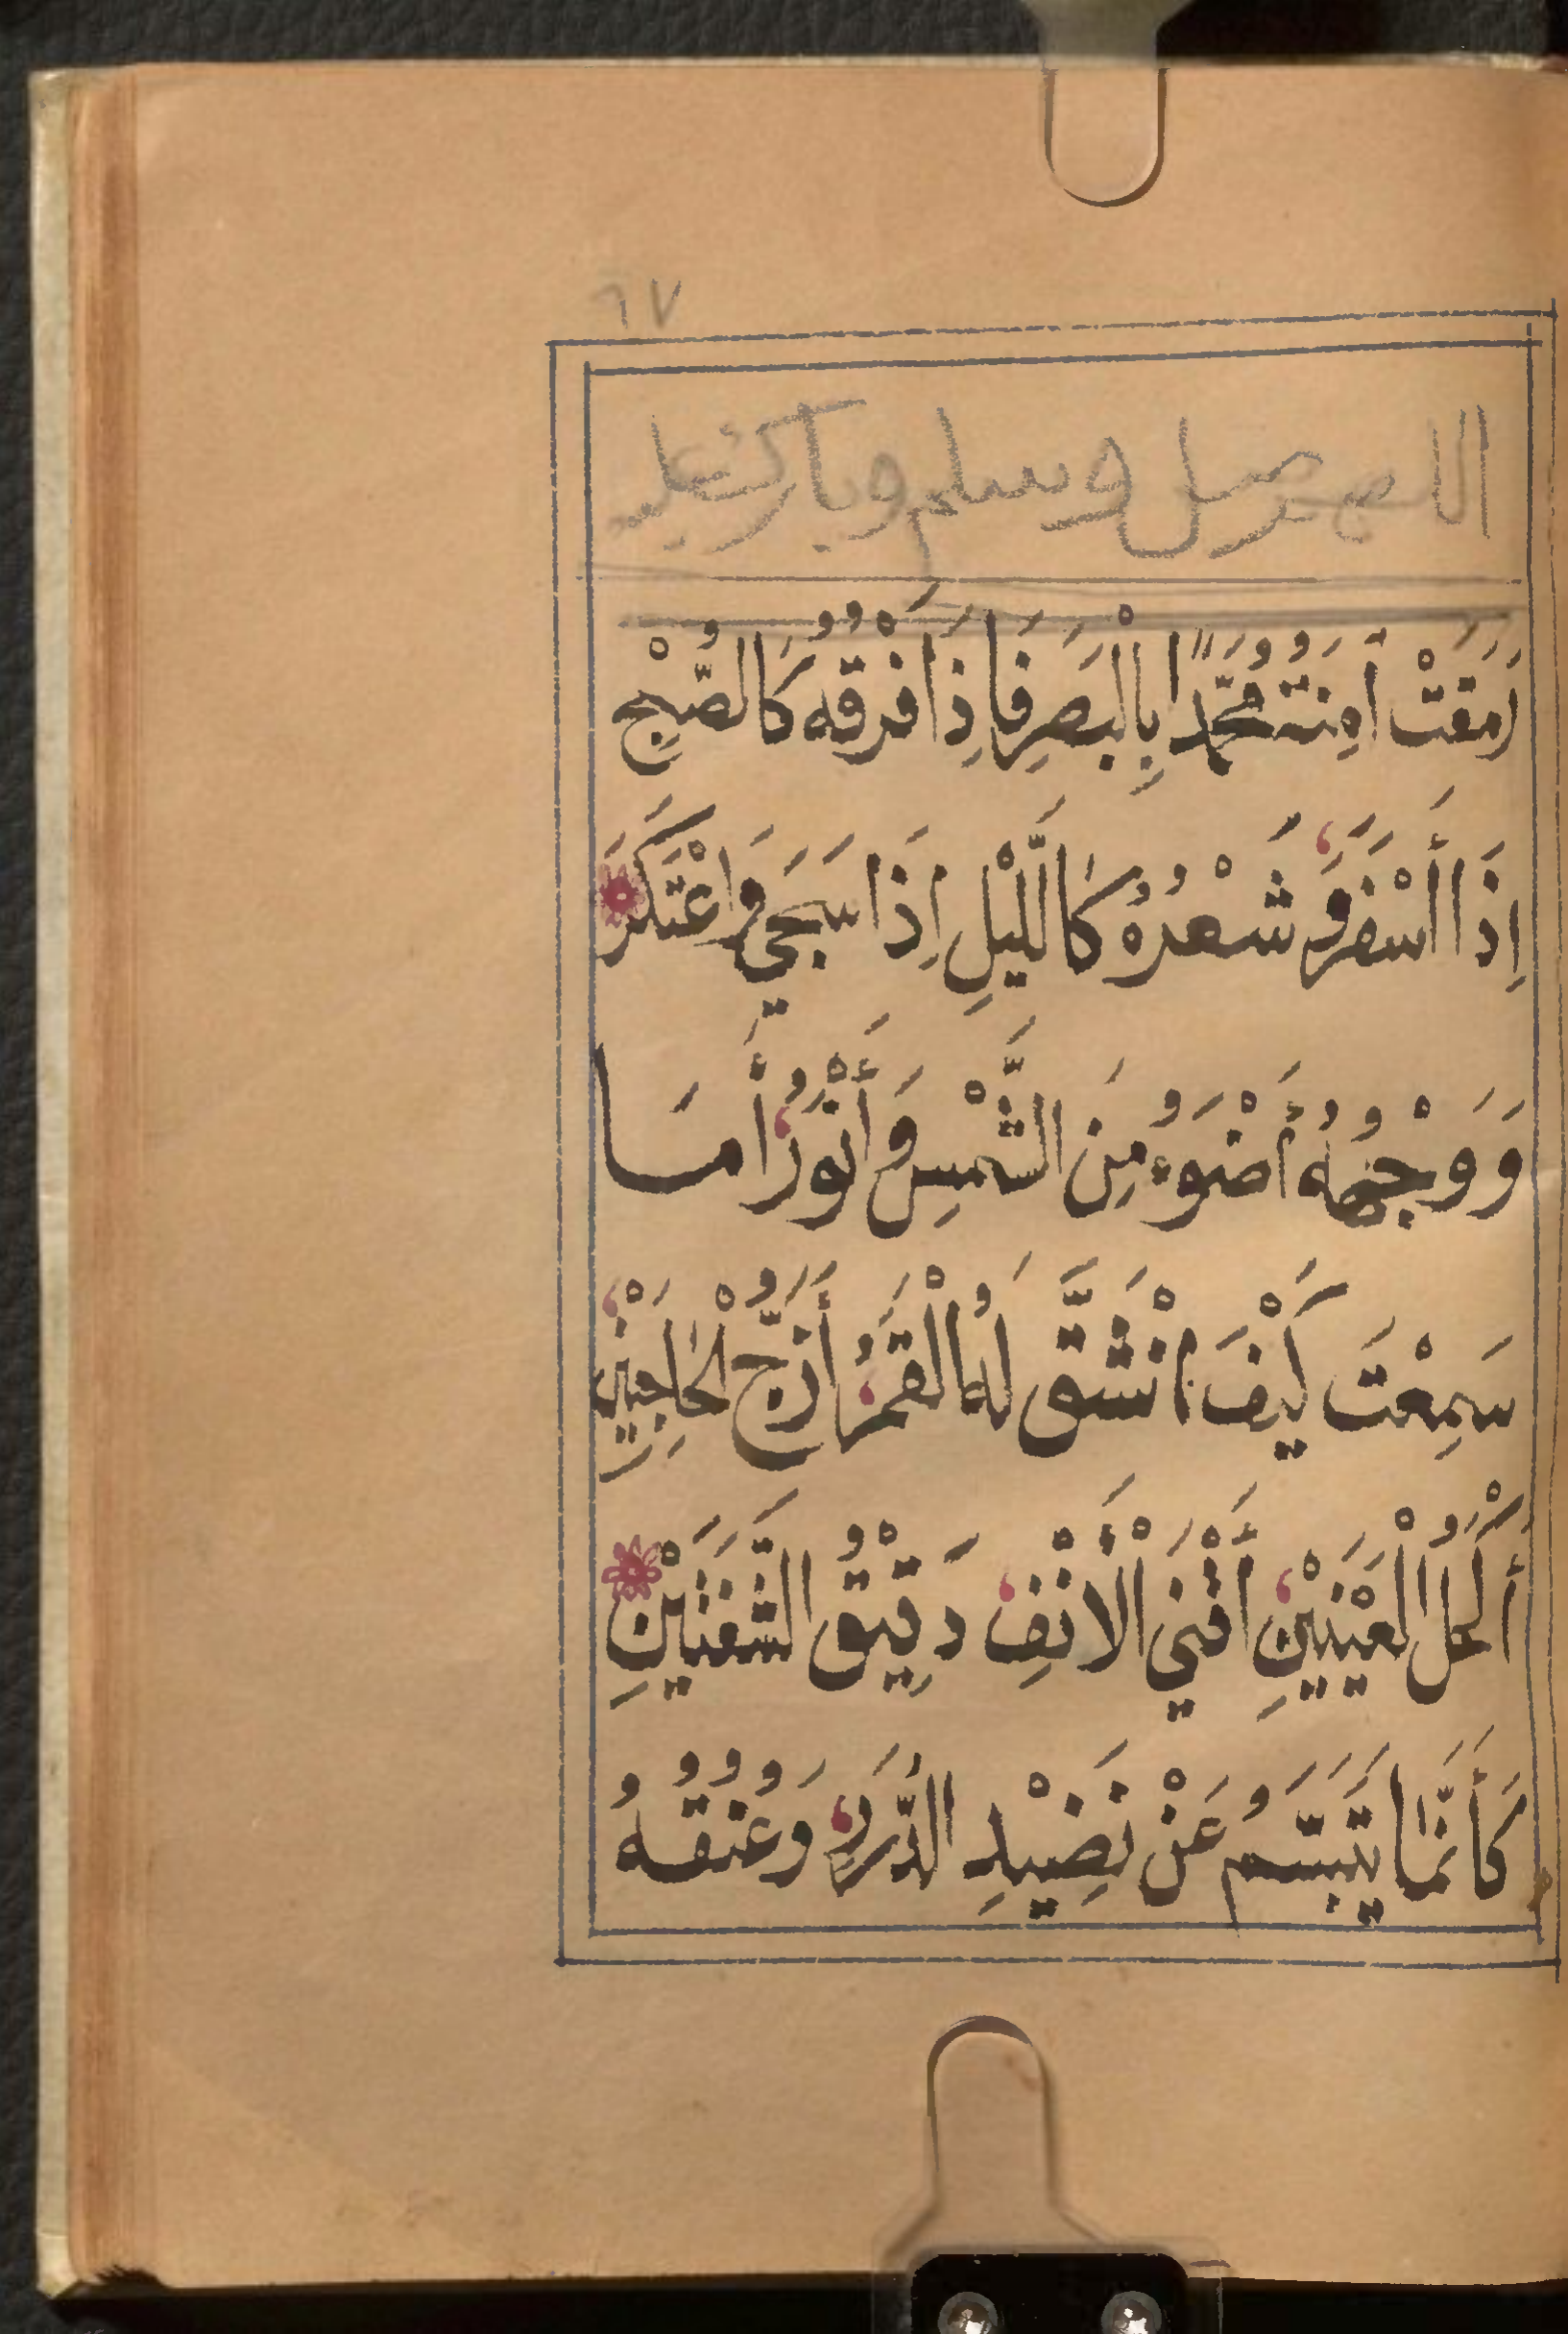 ٦٧
اللهم صل وسلم وبارك عليه
رَمَقَتْ أٰمِنَةُ مُحَمَّدًا بِالْبَصَرِ فَاِذَا فَرْقُهُ كَالصُّبْحِ
اِذَا أَسْفَرَ، وَشَعْرُهُ كَالَّيْلِ اِذَا سَجَي وَاعْتَكَرَ
وَوَجْهُهُ أَضْوَءُ مِنَ الشَّمْسِ وَأَنْوَرُ، أَمَا
سَمِعْتَ كَيْفَ انْشَقَّ لَهُ الْقَمَرُ، أَزَجُّ الْحَاجِبَيْنِ،
أَكْحَلُ الْعَيْنَيْنِ، أَقْنَي الْأَنْفِ، دَقِيْقُ الشَّفَتَيْنِ
كَأَنَّمَا يَتَبَسَّمُ عَنْ نَضِيْدِ الدُّرَرِ، وَعُنُقُهُ